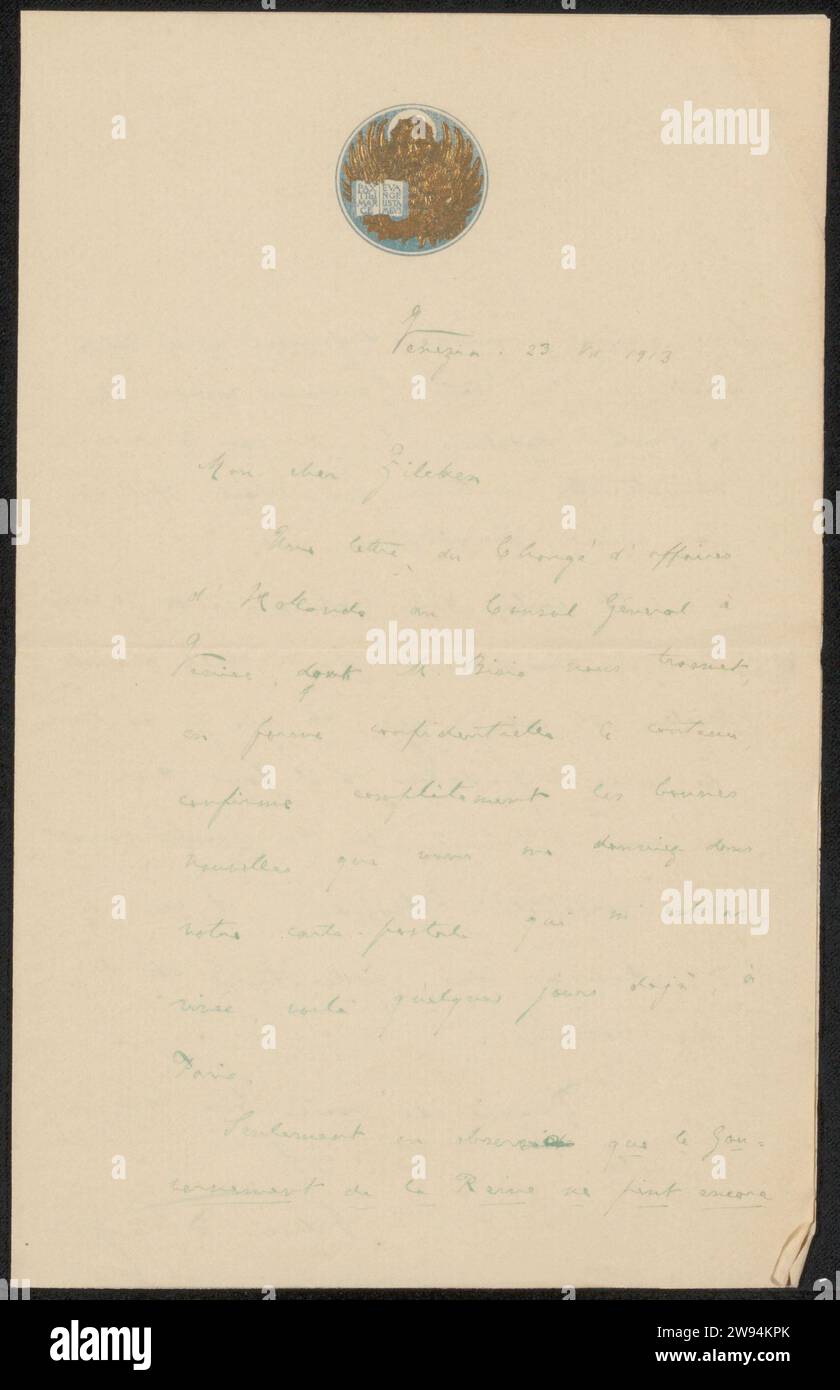 PAX
TIBI
MAR
CE
EVA
NGE
LISTA
MEVS
Venezia. 23 VII 1913
Mon cher Zilcken
Une lettre du Chargé d'affaires
d'Hollande au Consul Général à
Venise, dont M. nous transmet,
en forme confidentielle le contenu,
confirme complètement les bonnes
nouvelles que vous me donniez dans
votre carte-postale qui m'
voilà quelques jours déjà, à
Paris.
Seulement on que le Gou-
vernement de la Reine ne peut encore
alamy
alamy
Image ID: 2W94KPK
www.alamy.com